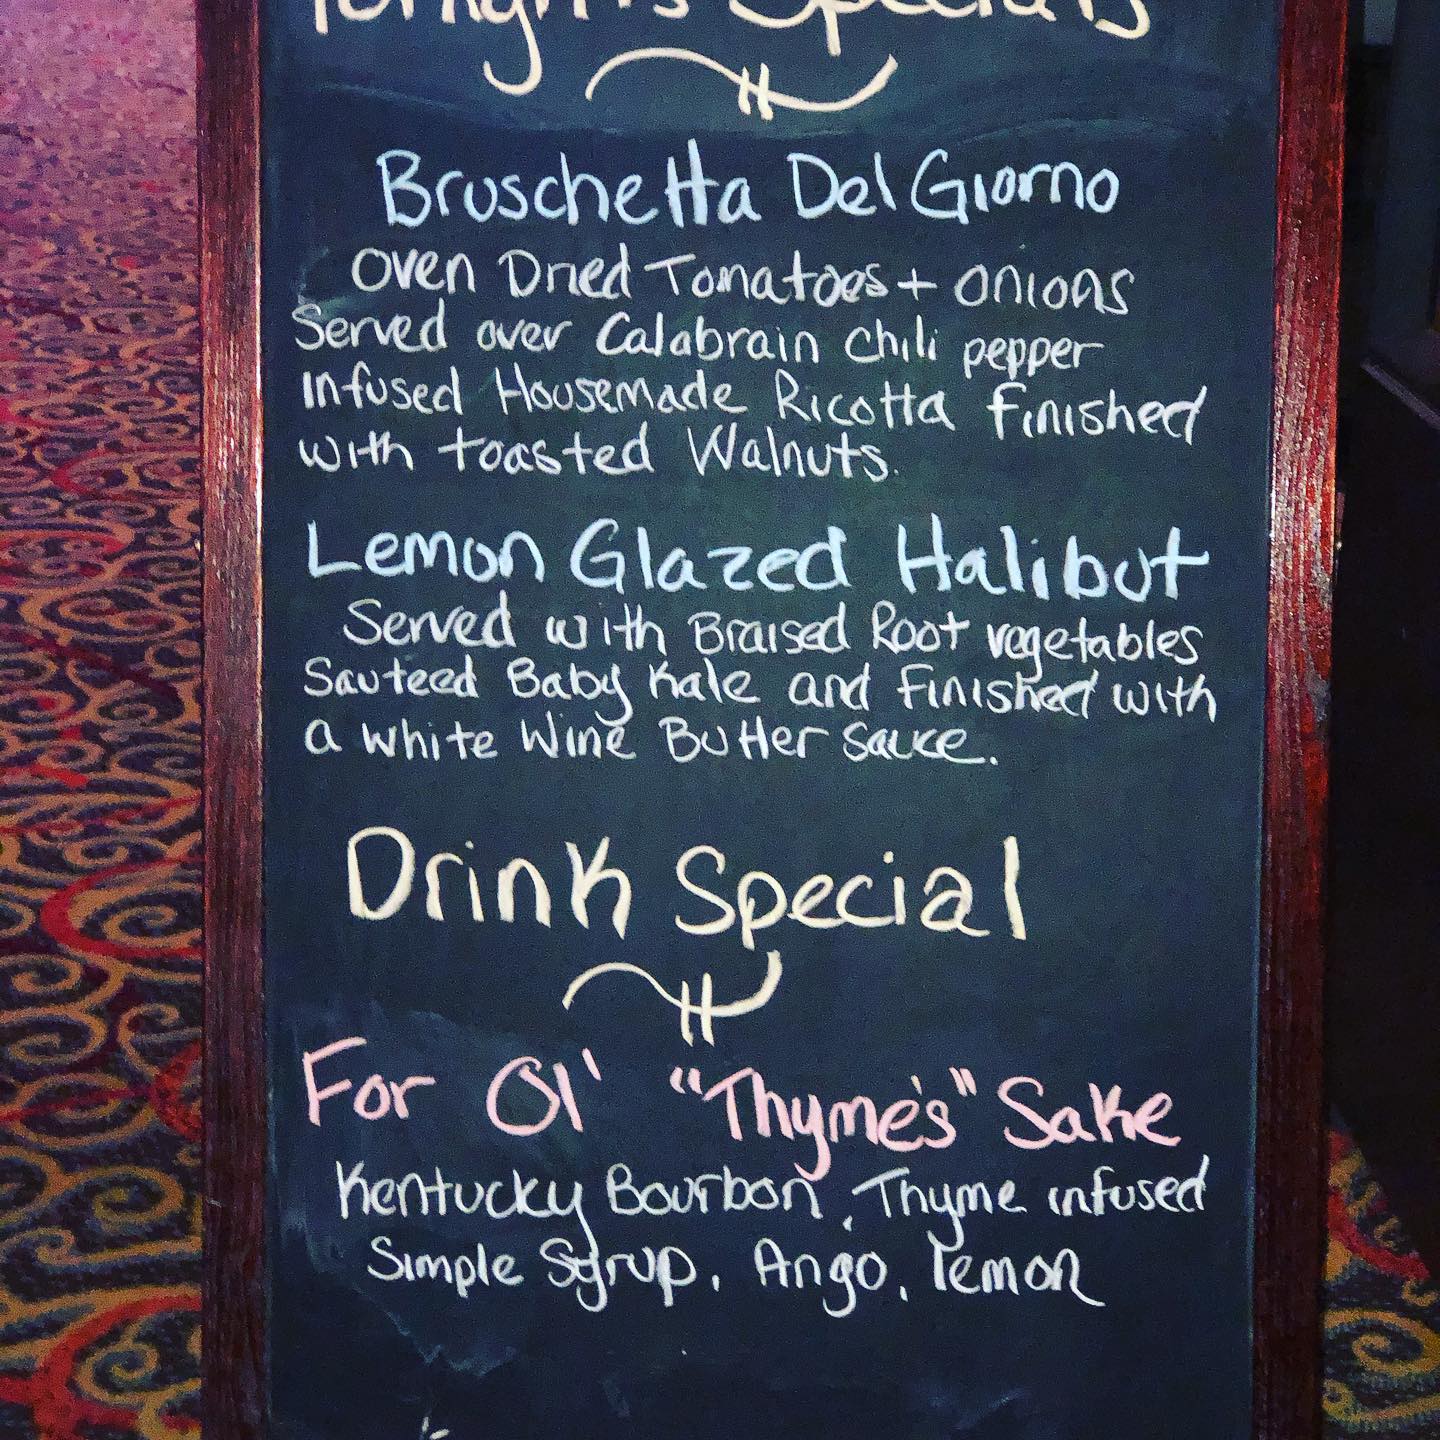 Tonight's Specials
Bruschetta Del Giorno
Oven Dried Tomatoes + onions
Served over Calabrain chili pepper
Infused Housemade Ricotta finished
with toasted Walnuts.
Lemon Glazed Halibut
Served with Braised Root vegetables
Sauteed Baby Kale and finished with
a white Wine Butter Sauce.
Drink Special
For Ol' "Thyme's" Sake
Kentucky Bourbon, Thyme infused
Simple Syrup, Ango, lemon